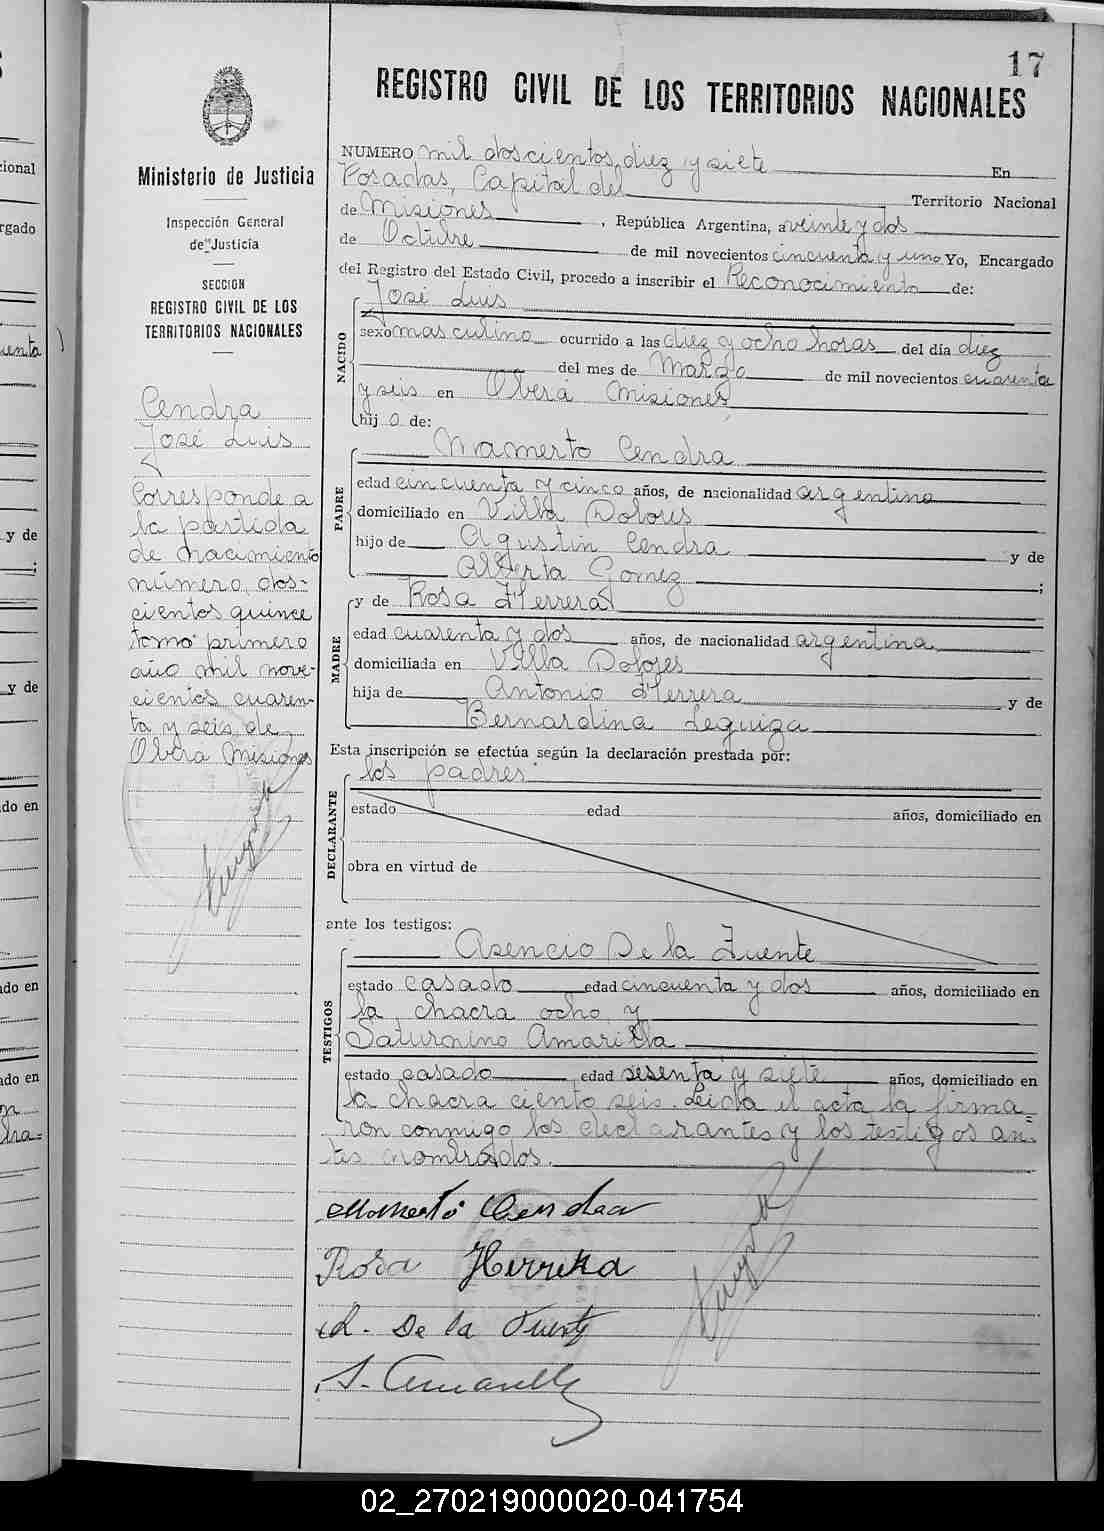 17
REGISTRO CIVIL DE LOS TERRITORIOS NACIONALES
Ministerio de Justicia
Inspección General
de Justicia
SECCION
REGISTRO CIVIL DE LOS
TERRITORIOS NACIONALES
Cendra
José Luis
Corresponde a
la partida
de nacimiento
número dos-
cientos quince
tomo primero
año mil nove-
cientos cuaren-
ta y seis de
Oberá Misiones
NUMERO mil doscientos diez y siete En
Posadas, Capital del Territorio Nacional
de Misiones, República Argentina, a veinte y dos
de Octubre de mil novecientos cincuenta y uno Yo, Encargado
del Registro del Estado Civil, procedo a inscribir el Reconocimiento de:
José Luis
NACIDO
sexo masculino ocurrido a las diez y ocho horas del día diez
del mes de Marzo de mil novecientos cuarenta
y seis en Oberá Misiones
hijo de:
PADRE
Mamerto Cendra
edad cincuenta y cinco años, de nacionalidad argentino
domiciliado en Villa Dolores
hijo de Agustin Cendra y de
Alberta Gomez ;
MADRE
y de Rosa Herrera
edad cuarenta y dos años, de nacionalidad argentina
domiciliada en Villa Dolores
hija de Antonio Herrera y de
Bernardina Leguiza
Esta inscripción se efectúa según la declaración prestada por:
DECLARANTE
los padres
estado edad años, domiciliado en
obra en virtud de
ante los testigos:
TESTIGOS
Asencio De la Fuente
estado casado edad cincuenta y dos años, domiciliado en
la chacra ocho y
Saturnino Amarilla
estado casado edad sesenta y siete años, domiciliado en
la chacra ciento seis. Leida el acta la firma=
ron conmigo los declarantes y los testigos an-
tes nombrados.
Mamerto Cendra
Rosa Herrera
A. De la Fuente
S. Amarilla
02_270219000020-041754